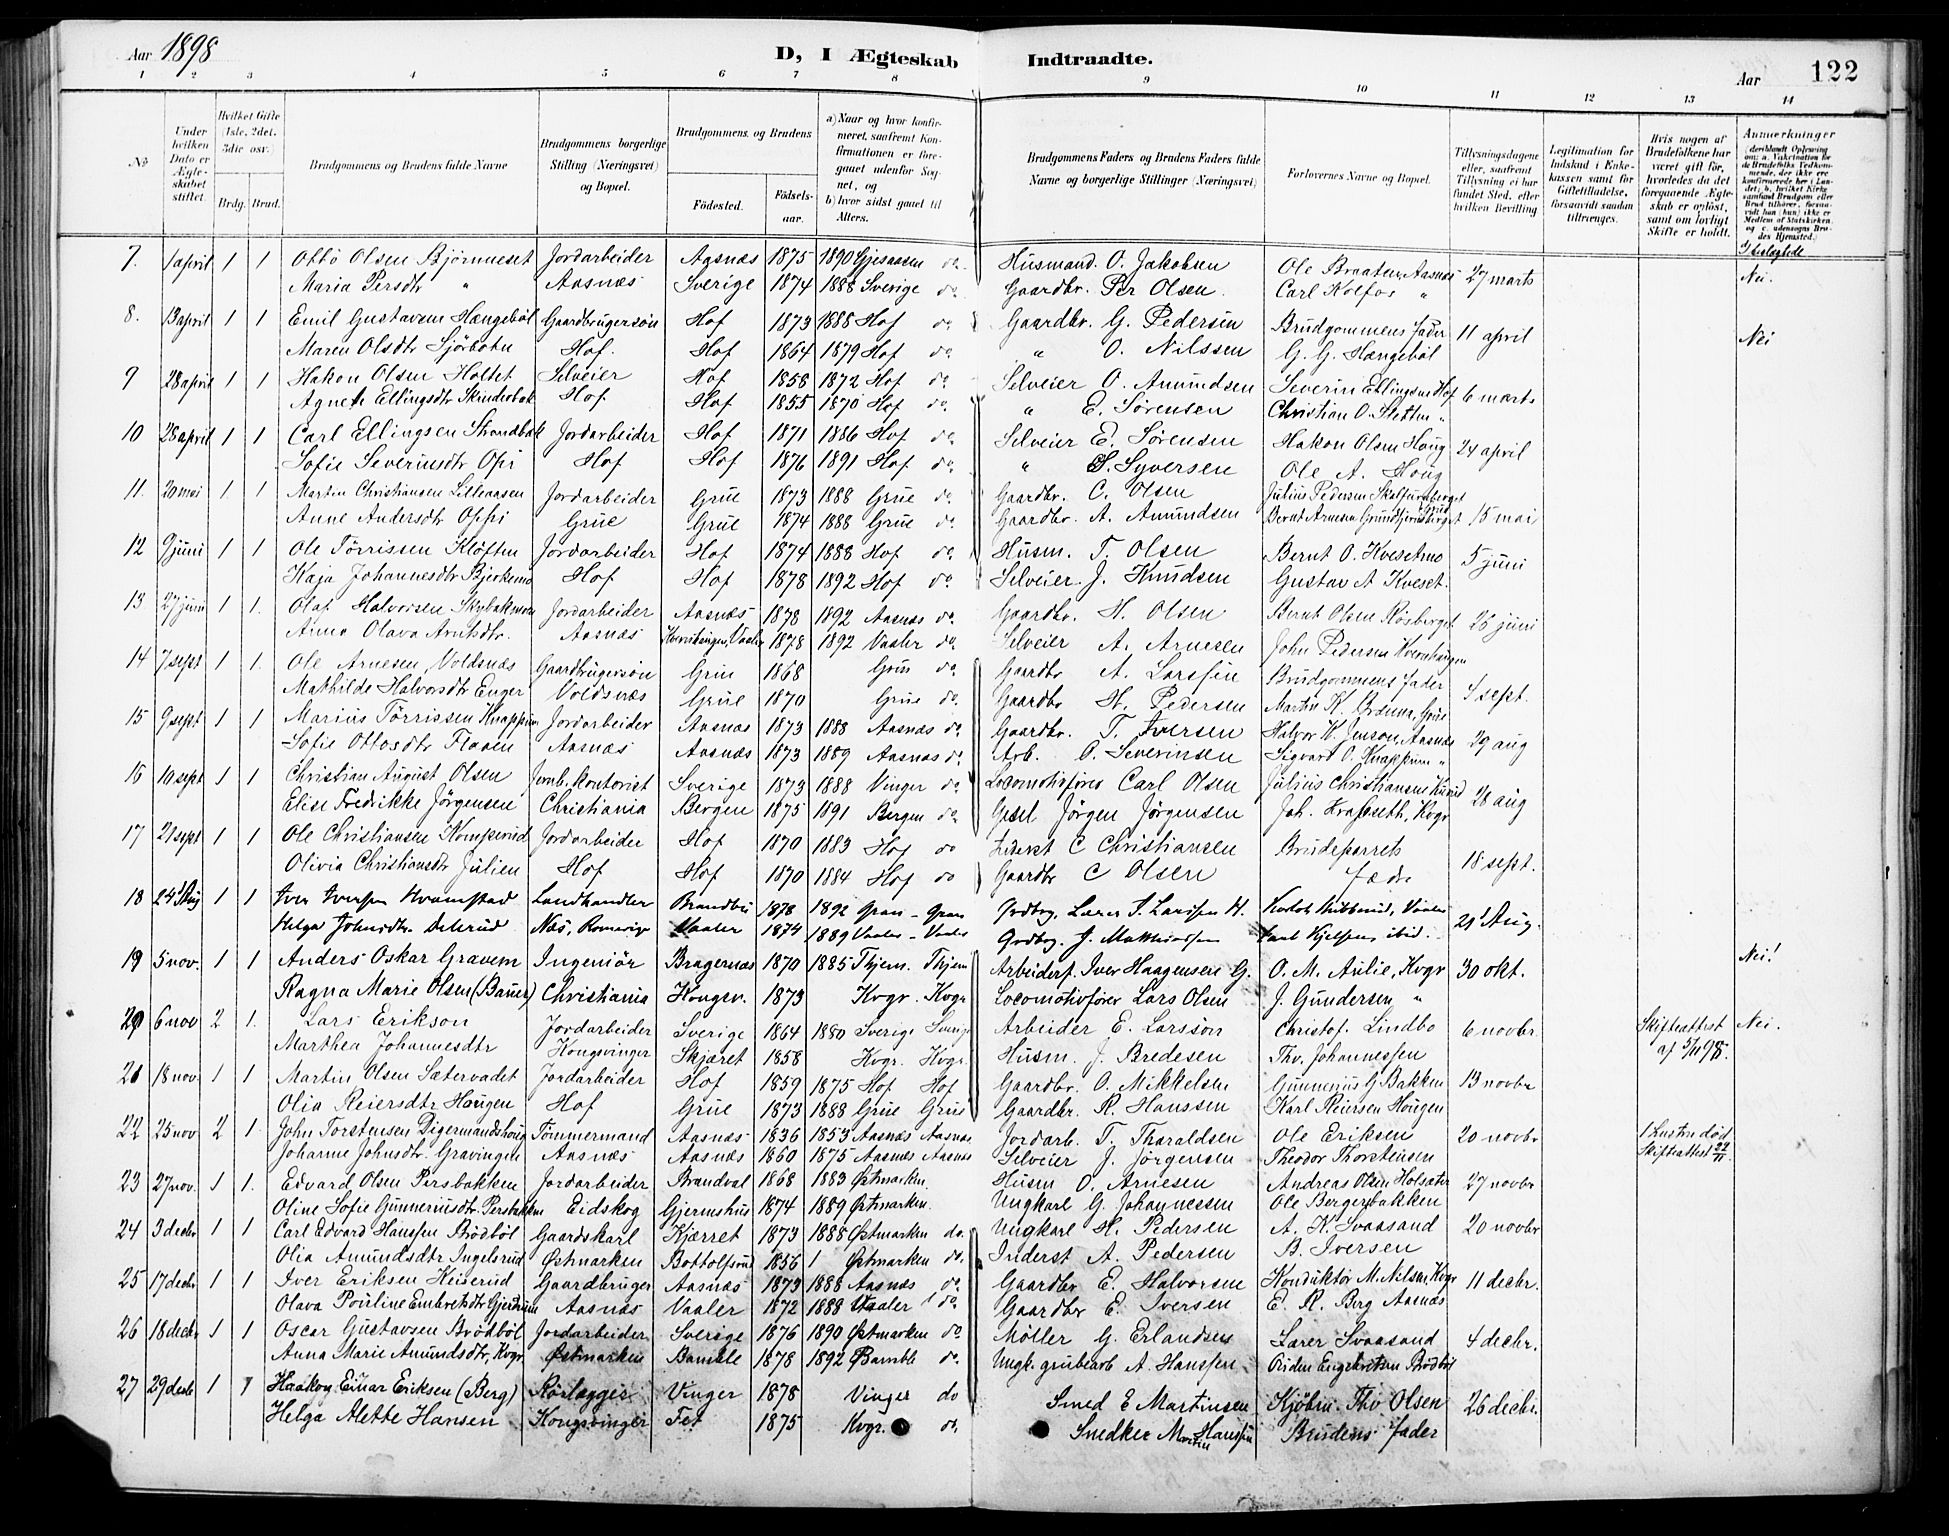 Aar 1898 D, I Ægteskab Indtraadte. Aar 122
1 2 3 4 5 6 7 8 9 10 11 12 13 14
No
Under hvilken Dato er Ægteskabet stiftet.
Hvilket Gifte (1ste, 2det, 3die osv.)
Brdg. Brud.
Brudgommens og Brudens fulde Navne
Brudgommens borgerlige Stilling (Næringsvei) og Bopæl.
Brudgommens og Brudens
Fødested. Fødselsaar.
a) Naar og hvor konfirmeret, saafremt Konfirmationen er foregaaet udenfor Sognet, og
b) hvor sidst gaaet til Alters.
Brudgommens Faders og Brudens Faders fulde Navne og borgerlige Stillinger (Næringsvei)
Forlovernes Navne og Bopæl.
Tillysningsdagene eller, saafremt Tillysning ei har fundet Sted, efter hvilken Bevilling
Legitimation for Indskud i Enkekassen samt for Giftetilladelse, forsaavidt saadan tiltrænges.
Hvis nogen af Brudefolkene har været gift før, hvorledes da det foregaaende Ægteskab er opløst, samt om lovligt Skifte er holdt.
Anmærkninger (deriblandt Oplysning om: a. Vakcination for de Brudefolks Vedkommende, der ikke ere konfirmerede her i Landet; b. hvilket Kirkesamfund Brudgom eller Brud tilhører, forsaavidt han (hun) ikke er Medlem af Statskirken, og c. udensogns Brudes Hjemsted.)
7. 1 april 1 1 Otto Olsen Bjørnneset Jordarbeider Aasnæs 1875 1890 Gjesaasen do. Husmand. O. Jakobsen Ole Braaten, Aasnæs 27 marts Nei.
Maria Persdtr " Aasnæs Sverige 1874 1888 Sverige do. Gaardbr. Per Olsen. Carl Kolfos "
8. 13 april 1 1 Emil Gustavsen Hængebøl Gaardbrugersøn Hof 1873 1888 Hof do. Gaardbr. G. Pedersen Brudgommens Fader 11 april Nei
Maren Olsdtr Sjørbotn Hof. Hof 1864 1879 Hof do. " O. Nilssen G. G. Hængebøl
9 28 april 1 1 Hakon Olsen Holtet Selveier Hof 1858 1872 Hof do. Selveier O. Amundsen Severin Ellingsen Hof 6 marts
Agnete Ellingsdtr Skinderbak Hof Hof 1855 1870 Hof do. " E. Sørensen Christian O. Sletten "
10 28 april 1 1 Carl Ellingsen Strandbak Jordarbeider Hof 1871 1886 Hof do. Selveier E. Sørensen Hakon Olsen Haug 24 april
Sofie Severinsdtr Opsi Hof Hof 1876 1891 Hof do. " S. Syversen Ole A. Houg
11. 20 mai 1. 1 Martin Christiansen Lilleaasen Jordarbeider Grue 1873 1888 Grue do. Gaardbr. C. Olsen Julius Pedersen 15 mai
Anne Andersdtr Oppi Grue Grue 1874 1888 Grue do. Gaardbr. A. Amundsen Bernt Arnesen
12 9 juni 1 1 Ole Tørrissen Kløften Jordarbeider Hof 1874 1888 Hof do. Husm. T. Olsen Bernt O. Kvesetmo 5 juni
Kaja Johannesdtr Bjerkemo Hof Hof 1878 1892 Hof do. Selveier. J. Knudsen Gustav A Kveset.
13 27 juni 1 1. Olaf Halvorsen Skybakmoen Jordarbeider Aasnæs 1878 1892 Aasnæs do. Gaardbr. H. Olsen Bernt Olsen Rösberget 26 juni
Anna Olava Arntsdtr. Aasnæs Kvernhaugen, Vaaler 1878 1892 Vaaler do. Selveier A. Arnesen John Pedersen Kvernhaugen
14 7 sept 1 1. Ole Arnesen Voldsnæs Gaardbrugersøn Grue 1868 Grue do. Gaardbr A. Larssen Brudgommens Fader 4 sept.
Mathilde Halvorsdtr Enger Voldsnæs Grue 1870 Grue do. Gaardbr H. Pedersen Martin K. Brænna, Grue
15 9 sept 1 1 Marius Tørrissen Knappum Jordarbeider Aasnæs 1873 1888 Aasnæs do. Gaardbr. T. Iversen Halvor H. Aasnæs 29 aug
Sofie Ottosdtr Flaaen Aasnæs Aasnæs 1873 1889 Aasnæs do. Arb. O. Severinsen Sigvard O. Knappum "
16 10 sept 1 1 Christian August Olsen Jernb. kontorist Sverige 1873 1888 Vinger do. Locomotivfører Carl Olsen Julius Christiansen 28 aug
Elise Fredrikke Jørgensen Christiania Bergen 1875 1891 Bergen do. Gesel Jørgen Jørgensen Joh. Krafseth, Kvgr
17 21 sept 1 1 Ole Christiansen Komperud Jordarbeider Hof 1870 1883 Hof do Inderst C Christiansen Brudeparrets 18 sept.
Olivia Christiansdtr Julien Hof Hof 1870 1884 Hof do Gaardbr C Olsen Fædre
18 24 Aug 1 1 Iver Iversen Hvamstad Landhandler Brandbu 1878 1892 Gran - Gran Grdbrg. Larer I. Larssen H. Vaaler 21 Aug.
Helga Johnsdtr. Delerud Næs, Romerige Vaaler 1874 1889 Vaaler - Vaaler Grdbrg. J. Matthiassen Carl Kjelsen, ibid.
19 5 nov. 1 1 Anders Oskar Gravem Ingeniør Bragernæs 1870 1885 Thjem. Thjem Arbeiderf. Iver Haagensen G. O. M. Aulie, Kvgr 30 okt. Nei!
Ragna Marie Olsen (Bauer) Christiania Kongsv. 1873 Kvgr. Kvgr Locomotivfører Lars Olsen J. Gundersen, "
20 6 nov 2 1. Lars Erikson Jordarbeider Sverige 1864 1880 Sverige Sverige Arbeider E. Larsson Christof. Lindbo 6 novbr. Skifteattest Nei.
Marthea Johannesdtr Kongsvinger Skjæret 1858 Kvgr. Kvgr. Husm. J. Bredesen Thv. Johannessen af 5/11 98.
21 18 nov. 1 1 Martin Olsen Sætervadet Jordarbeider Hof 1859 1875 Hof Hof Gaardbr. O. Mikkelsen Gunnerius G Bakken 13 novbr
Olia Reiersdtr Haugen Hof Grue 1873 1888 Grue Grue Gaardbr. R. Hanssen Karl Reiersen Hougen
22 25 nov 2 1. John Torstensen Digermandshoug Tømmermand Aasnæs 1836 1853 Aasnæs Aasnæs Jordarb. T. Tharaldsen Ole Eriksen 20 novbr 1 hustru død
Johanne Johnsdtr. Gravingen Aasnæs Aasnæs 1860 1875 Aasnæs Aasnæs Selveier J. Jørgensen Theodor Thorstensen Skifteattest 22/11.
23 27 nov. 1 1. Edvard Olsen Persbakken Jordarbeider Brandval 1868 1883 Østmarken. Husm O. Arnesen Andreas Olsen Holsæter 27 novbr
Oline Sofie Gunneriusdtr. Persbakken Eidskog Gjermshus 1874 1889 Østmarken. Ungkarl G. Johannessen Ole Bergersbakken
24 3 decbr 1 1 Carl Edvard Hanssen Brødbøl Gaardskarl Kjærret 1873 1888 Østmarken do. Ungkarl H. Pedersen A. K. Svaasand 20 novbr
Olia Amundsdtr Ingelsrud Østmarken Bottolfsrud 1856 1 Østmarken do. Inderst A. Pedersen B. Iversen
25 17 decbr 1 1 Iver Eriksen Keiserud Gaardbruger Aasnæs 1873 1888 Aasnæs do. Gaardbr E. Halvorsen Konduktør M. Nilsen, Kvgr 11 decbr.
Olava Pouline Embretsdtr Gjerdrum Aasnæs Vaaler 1872 1888 Vaaler do. Gaardbr E. Iversen E. R. Berg Aasnæs
26 18 decbr 1 1 Oscar Gustavsen Brødbøl Jordarbeider Sverige 1876 1890 Østmarken do. Møller G. Erlandsen Lærer Svaasand 4 decbr.
Anna Marie Amundsdtr, Kvgr. Østmarken Bamble 1878 1892 Bamble do. Ungk. grubearb A. Hanssen Engebretsen Brødbøl
27 29 decbr 1 1 Haakon Einar Eriksen (Berg) Rørlægger Vinger 1878 Vinger do Smed E Martinsen Kjøbm. Thv Olsen 26 decbr.
Helga Alette Hansen Kongsvinger Fet 1875 Kvgr. do. Snedker Martin Hanssen Brudens Fader